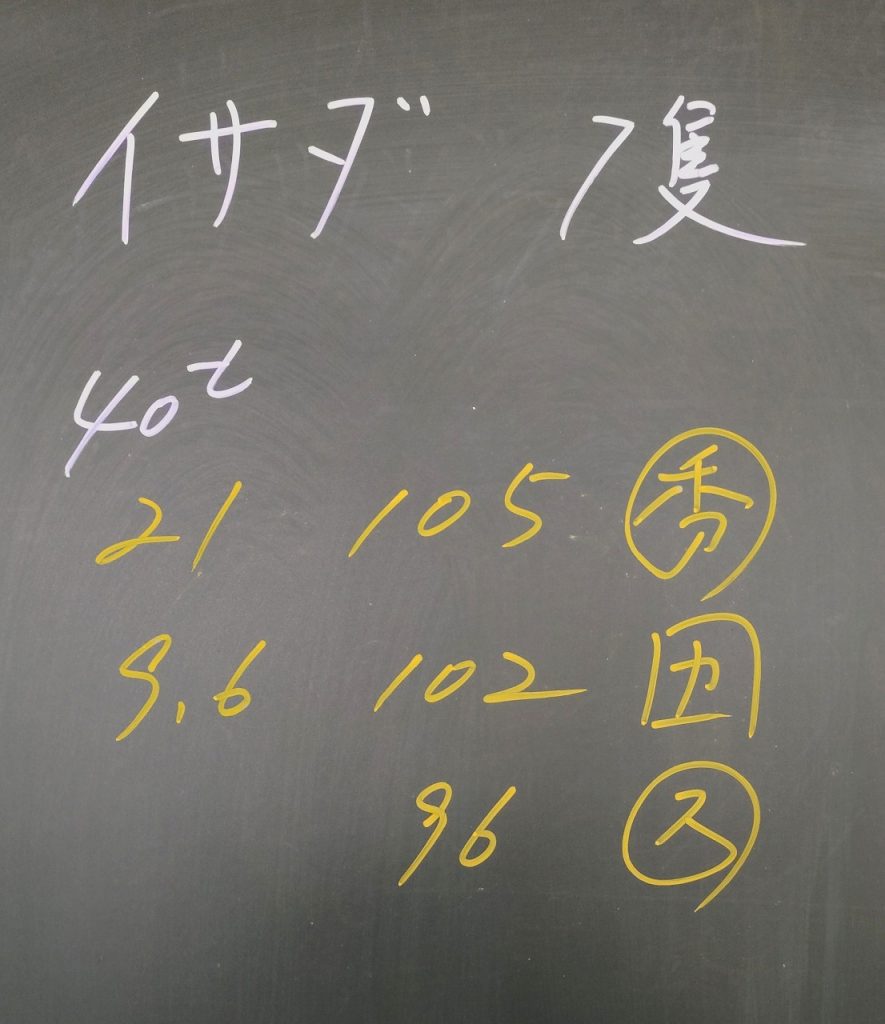 イサダ 7隻
40t
21 105 秀
9.6 102 カ
96 ス